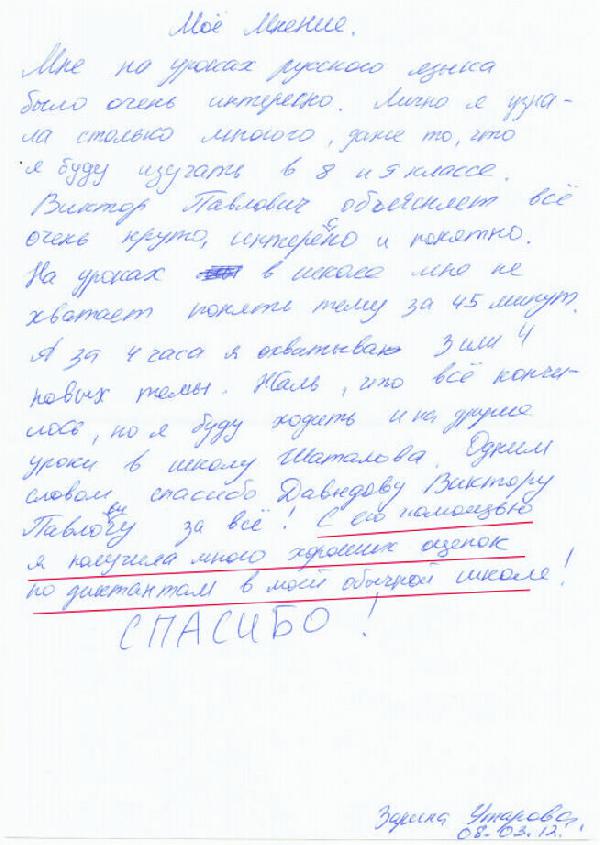 Моё Мнение.
Мне на уроках русского языка
было очень интересно. Лично я узна-
ла столько много, даже то, что
я буду изучать в 8 и 9 классе.
Виктор Павлович объясняет всё
очень круто, интересно и понятно.
На уроках в школе мне не
хватает понять тему за 45 минут.
А за 4 часа я охватываю 3 или 4
новых темы. Жаль, что всё кончи-
лось, но я буду ходить и на другие
уроки в школу Шаталова. Одним
словом спасибо Давыдову Виктору
Павловичу за всё! С его помощью
я получила много хороших оценок
по диктантам в моей обычной школе!
СПАСИБО!
Зарина Умарова.
08.03.12.